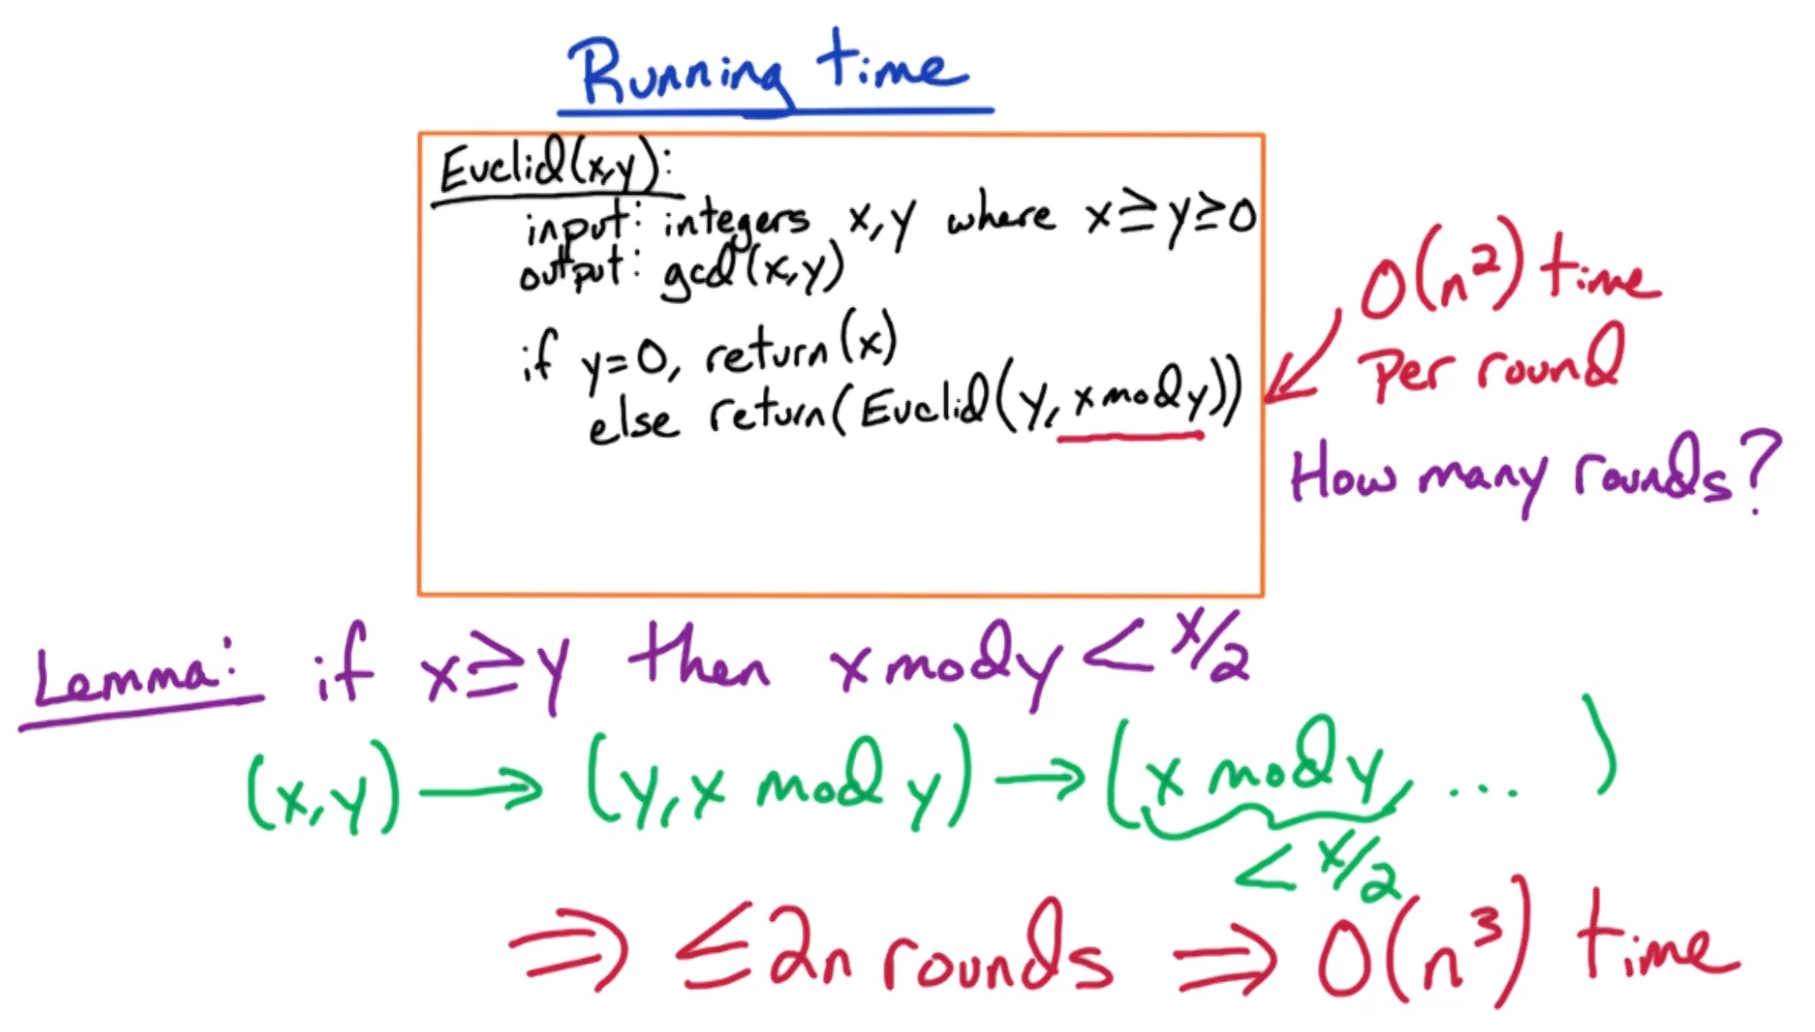 Running time
Euclid(x,y):
input: integers x,y where x≥y≥0
output: gcd(x,y)
if y=0, return(x)
else return(Euclid(y, x mod y))
O(n²) time
per round
How many rounds?
Lemma: if x≥y then x mod y < x/2
(x,y) → (y, x mod y) → (x mod y, ... )
< x/2
⇒ ≤ 2n rounds ⇒ O(n³) time